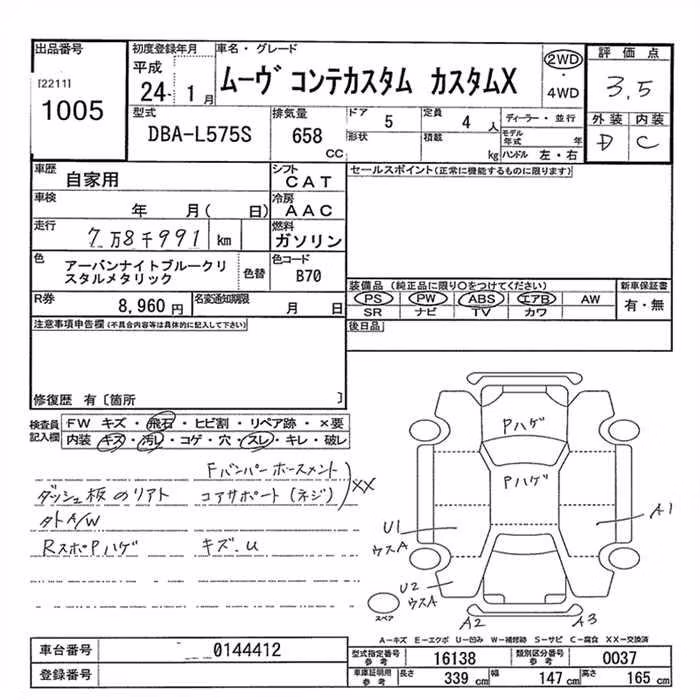 出品番号
[2211]
1005
初度登録年月
平成
24 - 1 月
車名・グレード
ムーヴ コンテカスタム カスタムX
2WD
・
4WD
評価点
3.5
外装 内装
D C
型式
DBA-L575S
排気量
658
CC
ドア 5
定員 4 人
形状
積載 kg
ディーラー・並行
モデル年式 年
ハンドル 左・右
車歴 自家用
シフト CAT
車検 年 月( 日)
冷房 AAC
走行 7万8千991 km
燃料 ガソリン
色 アーバンナイトブルークリスタルメタリック
色替
色コード B70
R券 8,960 円
名変通知期限 月 日
セールスポイント(正常に機能するものに限ります)
装備品 (純正品に限り○をつけてください)
PS PW ABS エアB AW
SR ナビ TV カワ
新車保証書
有・無
後日品
注意事項申告欄(不具合内容等は具体的に記入して下さい)
修復歴 有〔箇所 〕
検査員記入欄
FW キズ・飛石・ヒビ割・リペア跡・×要
内装 キズ・汚レ・コゲ・穴・スレ・キレ・破レ
Fバンパーホースメント
ダッシュ板のリアト コアサポート(ネジ) XX
タトA/W
RスポPハゲ キズ.U
Pハゲ
Pハゲ
A1
U1
ウスA
U2
ウスA
A2 A3
スペア
A-キズ E-エクボ U-凹み W-補修跡 S-サビ C-腐食 XX-交換済
車台番号 0144412
登録番号
型式指定番号 参考 16138
類別区分番号 参考 0037
車庫証明用 参考 長さ 339 cm 幅 147 cm 高さ 165 cm